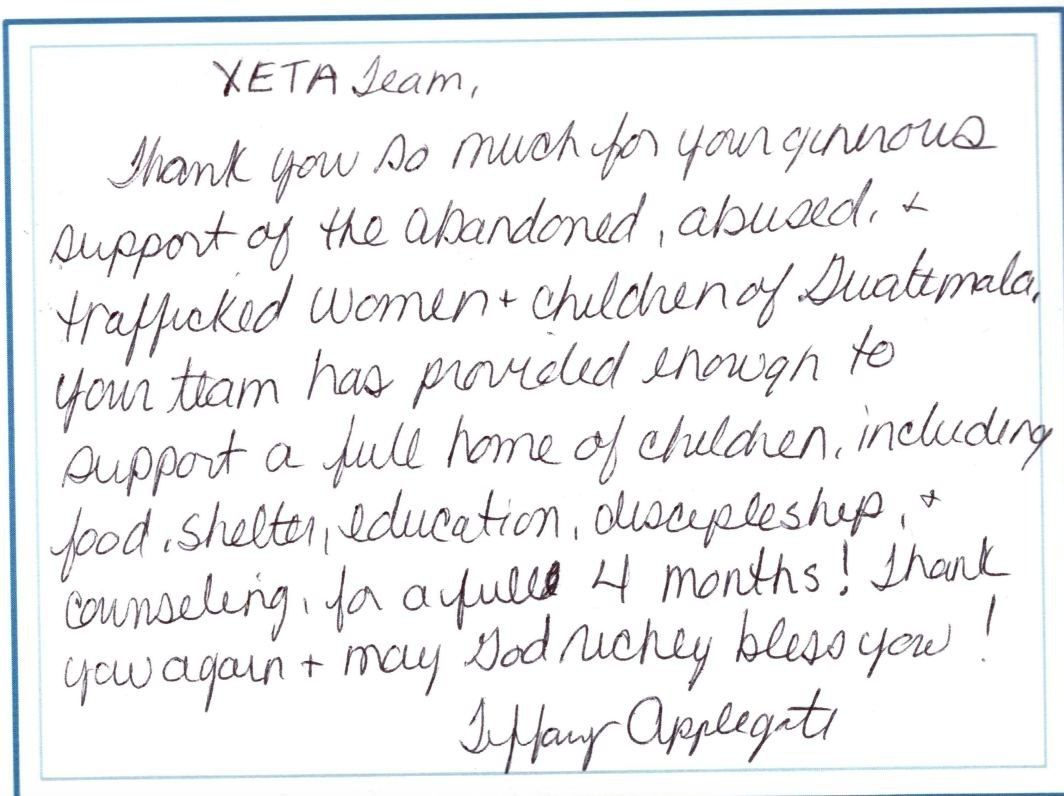 XETA Team,
Thank you so much for your generous
support of the abandoned, abused, +
trafficked women + children of Guatemala.
Your team has provided enough to
support a full home of children, including
food, shelter, education, discipleship, +
counseling, for a full 4 months! Thank
you again + may God richly bless you!
Tiffany Applegate